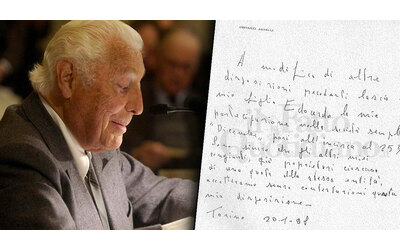 GIOVANNI AGNELLI
A modifica di altre
disposizioni precedenti lascio
mio figlio Edoardo la mia
partecipazione nella società sempl
Dicembre
25%
sicuro che gli altri miei
congiunti già proprietari ciascuno
di una quota della stessa entità,
accetteranno senza contestazioni questa
mia disposizione.
Torino 20.1.98